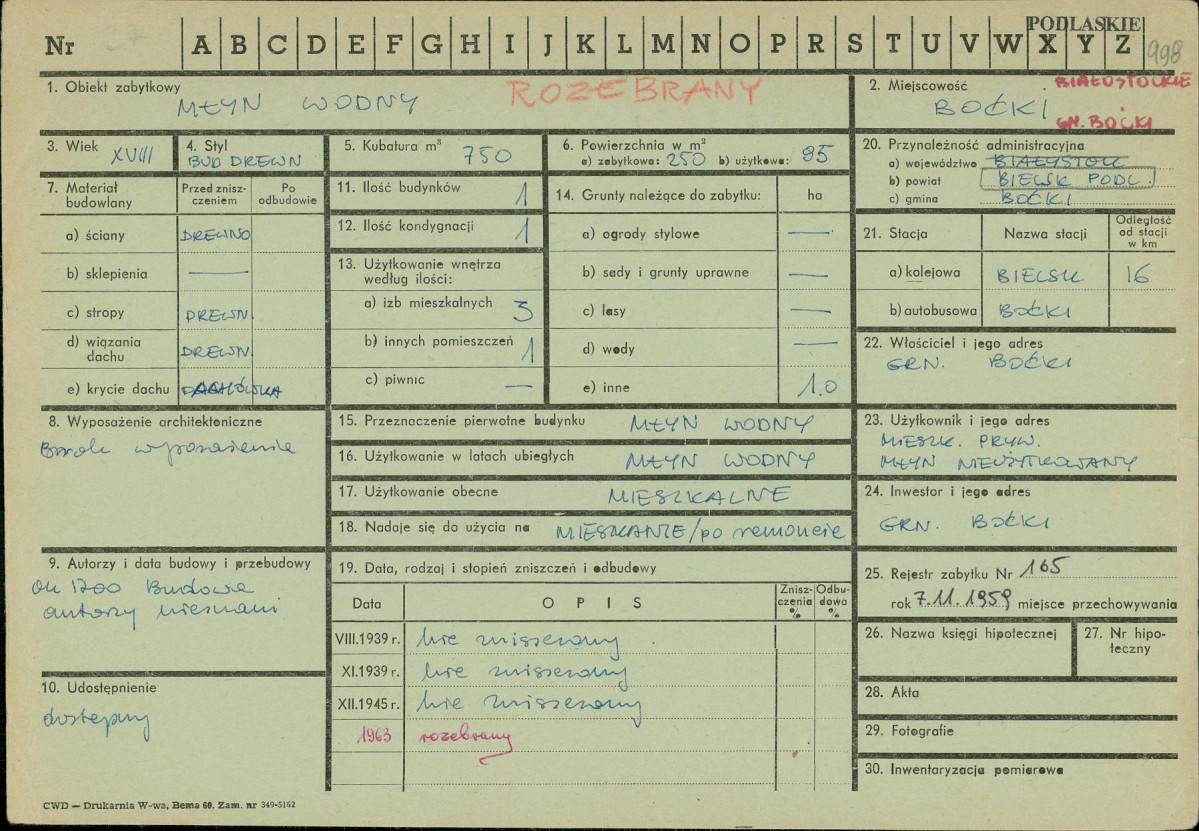 PODLASKIE
Nr A B C D E F G H I J K L M N O P R S T U V W X Y Z 998
1. Obiekt zabytkowy
MŁYN WODNY
ROZEBRANY
2. Miejscowość
BOĆKI
BIAŁOSTOCKIE
GN. BOĆKI
3. Wiek XVIII
4. Styl
BUD DREWN
5. Kubatura m³ 750
6. Powierzchnia w m²
a) zabytkowa: 250 b) użytkowa: 95
20. Przynależność administracyjna
a) województwo BIAŁYSTOK
b) powiat BIELSK PODL.
c) gmina BOĆKI
7. Materiał budowlany
Przed zniszczeniem
Po odbudowie
a) ściany DREWNO
b) sklepienia —
c) stropy DREWN.
d) wiązania dachu DREWN.
e) krycie dachu DACHÓWKA
11. Ilość budynków 1
12. Ilość kondygnacji 1
13. Użytkowanie wnętrza według ilości:
a) izb mieszkalnych 3
b) innych pomieszczeń 1
c) piwnic —
14. Grunty należące do zabytku: ha
a) ogrody stylowe —
b) sady i grunty uprawne —
c) lasy —
d) wody —
e) inne 1.0
21. Stacja
Nazwa stacji
Odległość od stacji w km
a) kolejowa BIELSK 16
b) autobusowa BOĆKI
22. Właściciel i jego adres
GRN. BOĆKI
8. Wyposażenie architektoniczne
Brak wyposażenia
15. Przeznaczenie pierwotne budynku MŁYN WODNY
16. Użytkowanie w latach ubiegłych MŁYN WODNY
17. Użytkowanie obecne MIESZKALNE
18. Nadaje się do użycia na MIESZKANIE/po remoncie
23. Użytkownik i jego adres
MIESZK. PRYW.
MŁYN NIEUŻYTKOWANY
24. Inwestor i jego adres
GRN. BOĆKI
9. Autorzy i data budowy i przebudowy
ok 1700 Budowa
autorzy nieznani
19. Data, rodzaj i stopień zniszczeń i odbudowy
Data
OPIS
Zniszczenia %
Odbudowa %
VIII.1939 r. nie zniszczony
XI.1939 r. nie zniszczony
XII.1945 r. nie zniszczony
1963 rozebrany
25. Rejestr zabytku Nr 165
rok 7.11.1959 miejsce przechowywania
26. Nazwa księgi hipotecznej
27. Nr hipoteczny
10. Udostępnienie
dostępny
28. Akta
29. Fotografie
30. Inwentaryzacja pomiarowa
CWD — Drukarnia W-wa, Bema 60. Zam. nr 349-5162